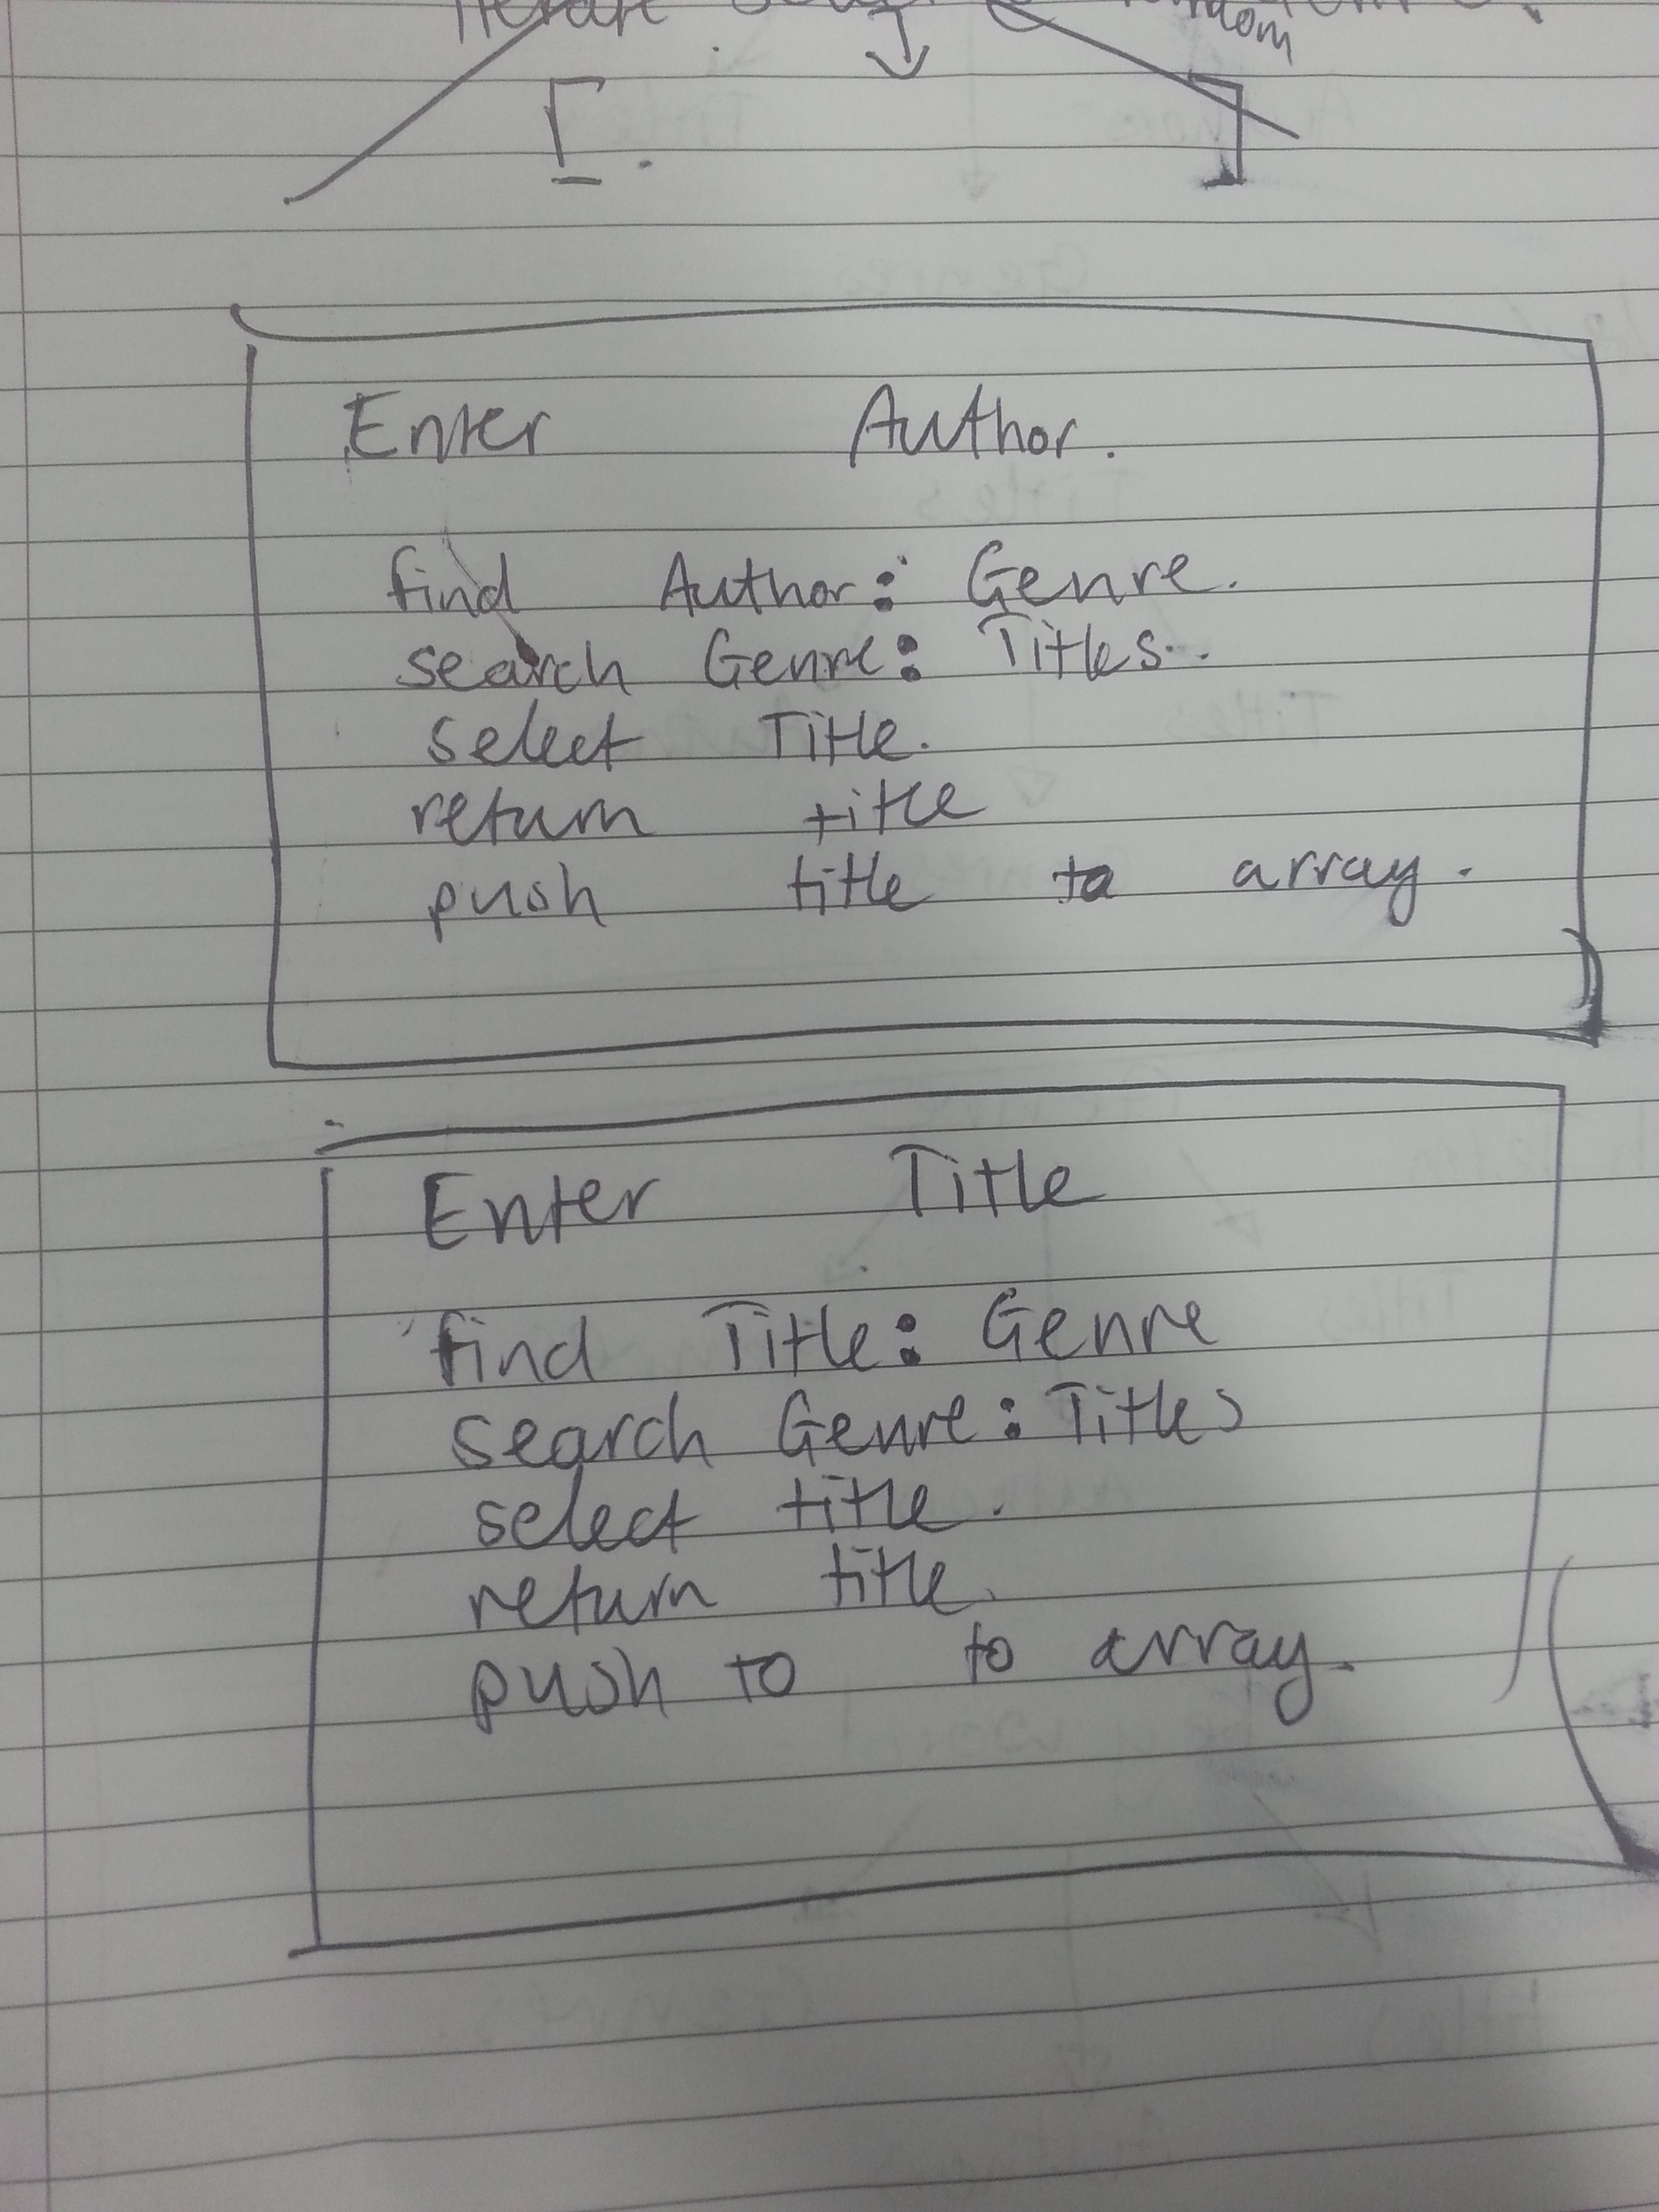 Iterate
random
[ ]
Enter Author.
find Author: Genre.
search Genre: Titles.
select Title.
return title
push title to array.
Enter Title
find Title: Genre
search Genre: Titles
select title.
return title.
push to to array.